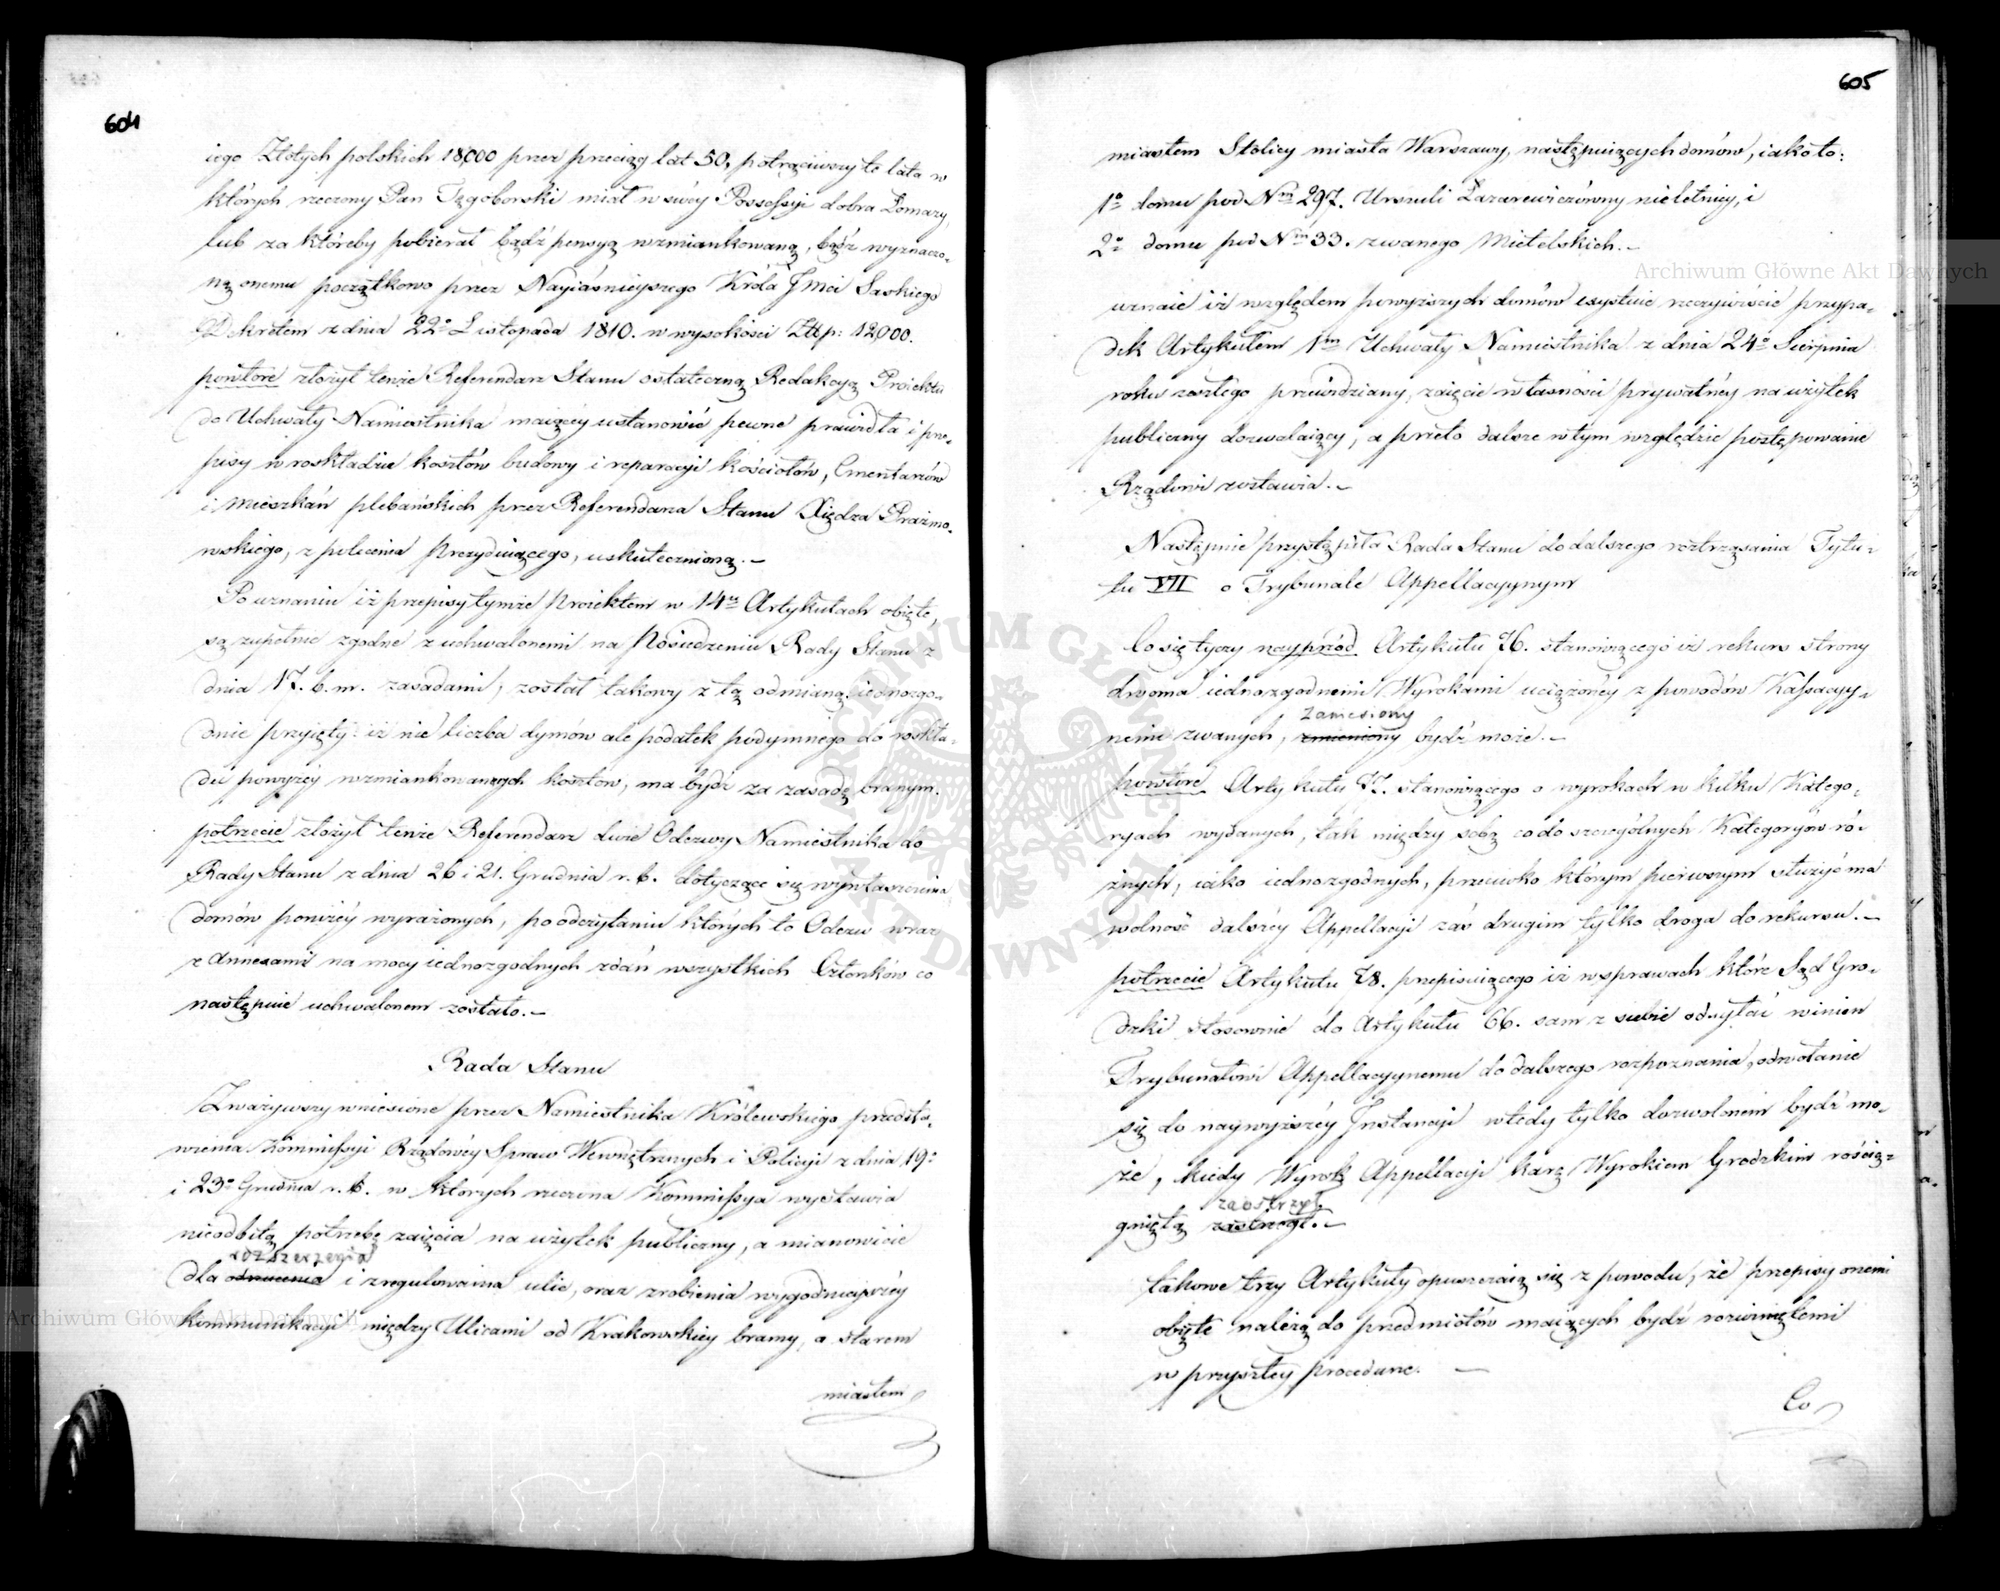 604
iego Złotych polskich 18,000 przez przeciąg lat 50, potrąciwszy te lata w
których rzeczony Pan Tęgoborski miał w swéy Possessyi dobra Łomazy,
lub za któreby pobierał bądź pensyą wzmiankowaną, bądź wyznaczo-
ną onemu początkowo przez Nayiaśnieyszego Króla Jmci Saskiego
Dekretem z dnia 22º Listopada 1810. w wysokości Złlp: 12,000.
powtóre złożył tenże Referendarz Stanu ostateczną Redakcyą Proiektu
do Uchwały Namiestnika maiącéy ustanowić pewne prawidła i prze-
pisy w roskładzie kosztów budowy i reparacyi kościołów, Cmentarzów
i mieszkań plebańskich przez Referendarza Stanu Xiędza Prażmo-
wskiego, z polecenia Prezyduiącego, uskutecznioną.-
Po uznaniu iż przepisy tymże Proiektem w 14tu Artykułach obięte,
są zupełnie zgodne z uchwalonemi na Posiedzeniu Rady Stanu z
dnia 17. b. m. zasadami, został takowy z tą odmianą iednozgo-
dnie przyięty: iż nie liczba dymów ale podatek podymnego do roskła-
du powyżéy wzmiankowanych kosztów, ma bydź za zasadę branym.
potrzecie złożył tenże Referendarz dwie Odezwy Namiestnika do
Rady Stanu z dnia 26 i 21. Grudnia r. b. dotyczące się wywłaszczenia
domów poniżéy wyrażonych, po odczytaniu których to Odezw wraz
z Annexami na mocy iednozgodnych zdań wszystkich Członków co
następuie uchwalonem zostało.-
Rada Stanu
Zważywszy wniesione przez Namiestnika Królewskiego przedsta-
wienia Kommissyi Rządowéy Spraw Wewnętrznych i Policyi z dnia 19º
i 23º Grudnia r. b. w których rzeczona Kommissya wystawia
nieodbitą potrzebę zaięcia na użytek publiczny, a mianowicie
rozszerzenia
dla odnucenia i zregulowania ulic, oraz zrobienia wygodnieyszéy
kommunikacyi między Ulicami od Krakowskiey bramy, a starem
miastem
605
miastem Stolicy miasta Warszawy, następuiących domów, iako to:
1º domu pod Nrm 297. Urszuli Łazarewiczówny nieletniey, i
2º domu pod Nrm 33. zwanego Mietelskich.-
uznaie iż względem powyższych domów exystuie rzeczywiście przypa-
dek Artykułem 1m Uchwały Namiestnika z dnia 24º Sierpnia
roku zeszłego przewidziany, zaięcie własności prywatnéy na użytek
publiczny dozwalaiący, a przeto dalsze w tym względzie postępowanie
Rządowi zostawia.-
Następnie przystąpiła Rada Stanu do dalszego roztrząsania Tytu-
łu VII o Trybunale Appellacyynym
Co się tyczy nayprzód Artykułu 76. stanowiącego iż rekurs strony
dwoma iednozgodnemi Wyrokami uciążonéy z powodów Kassacyy-
zaniesiony
nemi zwanych, zmieniony bydź może.-
powtóre Artykułu 77. stanowiącego o wyrokach w kilku Katego-
ryach wydanych, tak między sobą co do szczególnych Kategoryów ró-
żnych, iako iednozgodnych, przeciwko którym pierwszym służyć ma
wolność dalszéy Appellacyi zaś drugim tylko droga do rekursu.-
potrzecie Artykułu 78. przepisuiącego iż w sprawach które Sąd Gro-
dzki stosownie do Artykułu 66. sam z siebie odsyłać winien
Trybunałowi Appellacyynemu do dalszego rozpoznania, odwołanie
się do naywyższéy Instancyi wtedy tylko dozwolonem bydź mo-
że, kiedy Wyrok Appellacyi karę Wyrokiem Grodzkim rością-
zaostrzył
gniętą zastrzegł.-
takowe trzy Artykuły opuszczaią się z powodu, że przepisy onemi
obięte należą do przedmiotów maiących bydź rozwiniętemi
w przyszłey procedurze. -
Co
Archiwum Główne Akt Dawnych
Archiwum Główne Akt Dawnych
ARCHIWUM GŁÓWNE AKT DAWNYCH